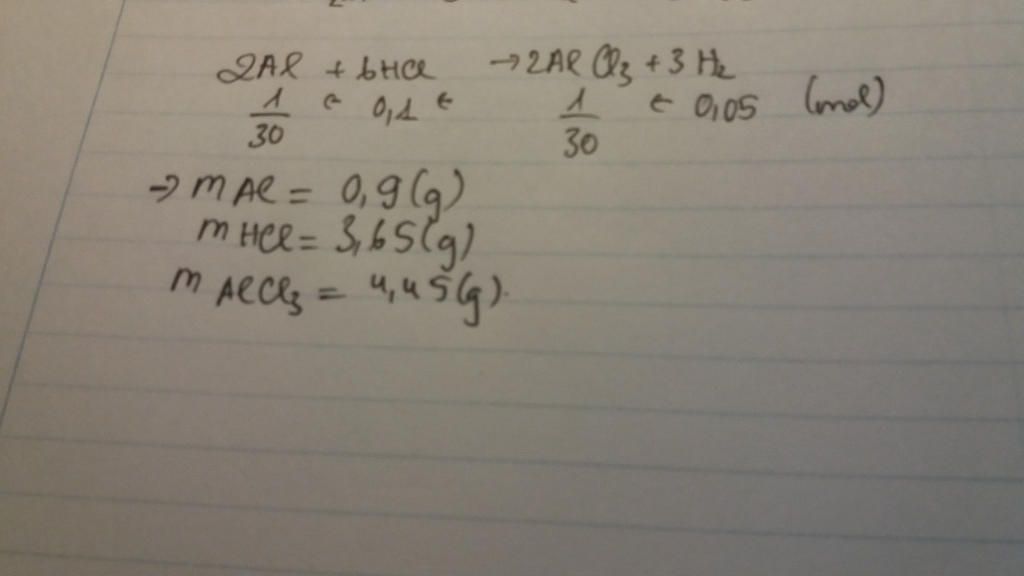 2Al + 6HCl → 2AlCl3 + 3H2
1/30 ← 0,1 ← 1/30 ← 0,05 (mol)
→ m Al = 0,9(g)
m HCl = 3,65(g)
m AlCl3 = 4,45(g).